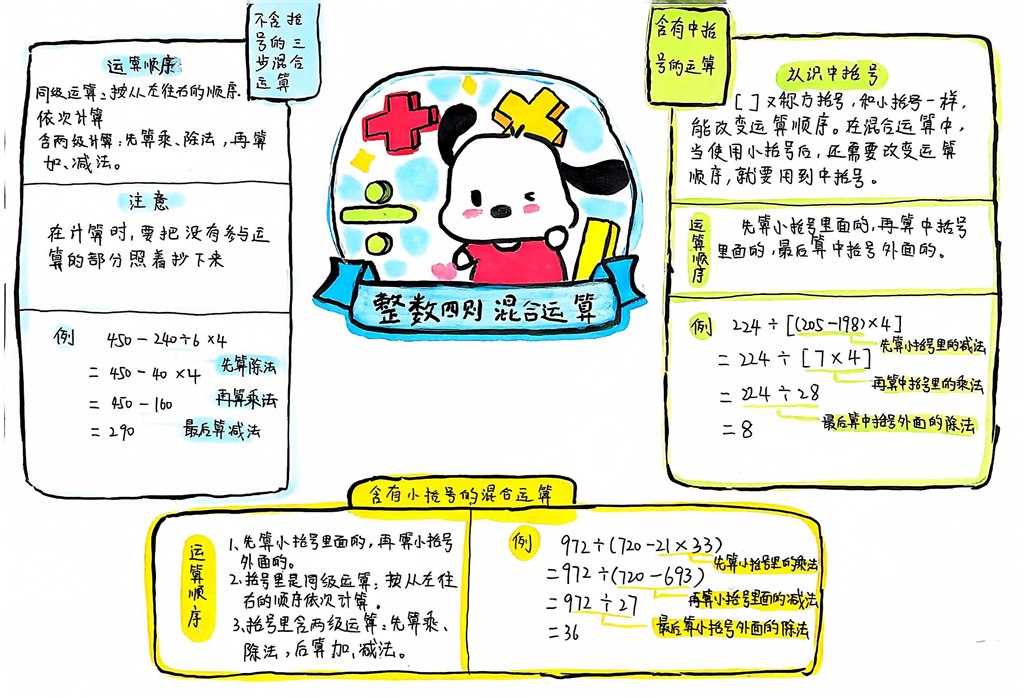 不含括
号的三
步混合
运算
运算顺序
同级运算:按从左往右的顺序
依次计算
含两级计算:先算乘、除法,再算
加、减法。
注意
在计算时,要把没有参与运
算的部分照着抄下来
例
450-240÷6×4
=450-40×4
先算除法
=450-160
再算乘法
=290
最后算减法
整数四则混合运算
含有中括
号的运算
认识中括号
[ ]又称方括号,和小括号一样,
能改变运算顺序。在混合运算中,
当使用小括号后,还需要改变运算
顺序,就要用到中括号。
运算顺序
先算小括号里面的,再算中括号
里面的,最后算中括号外面的。
例
224÷[(205-198)×4]
先算小括号里的减法
=224÷[7×4]
再算中括号里的乘法
=224÷28
最后算中括号外面的除法
=8
含有小括号的混合运算
运算顺序
1、先算小括号里面的,再算小括号
外面的。
2、括号里是同级运算:按从左往
右的顺序依次计算。
3、括号里含两级运算:先算乘、
除法,后算加、减法。
例
972÷(720-21×33)
先算小括号里的乘法
=972÷(720-693)
再算小括号里面的减法
=972÷27
最后算小括号外面的除法
=36